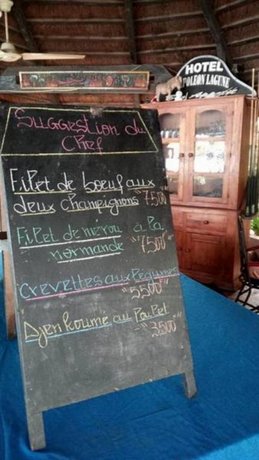 HOTEL
NAPOLEON LAGUNE
Suggestion du
Chef
Filet de boeuf aux
deux champignons "7.500"
Filet de merou à la
normande "7.500"
Crevettes aux légumes
"5500"
Djenkoumé au Poulet
"3500"